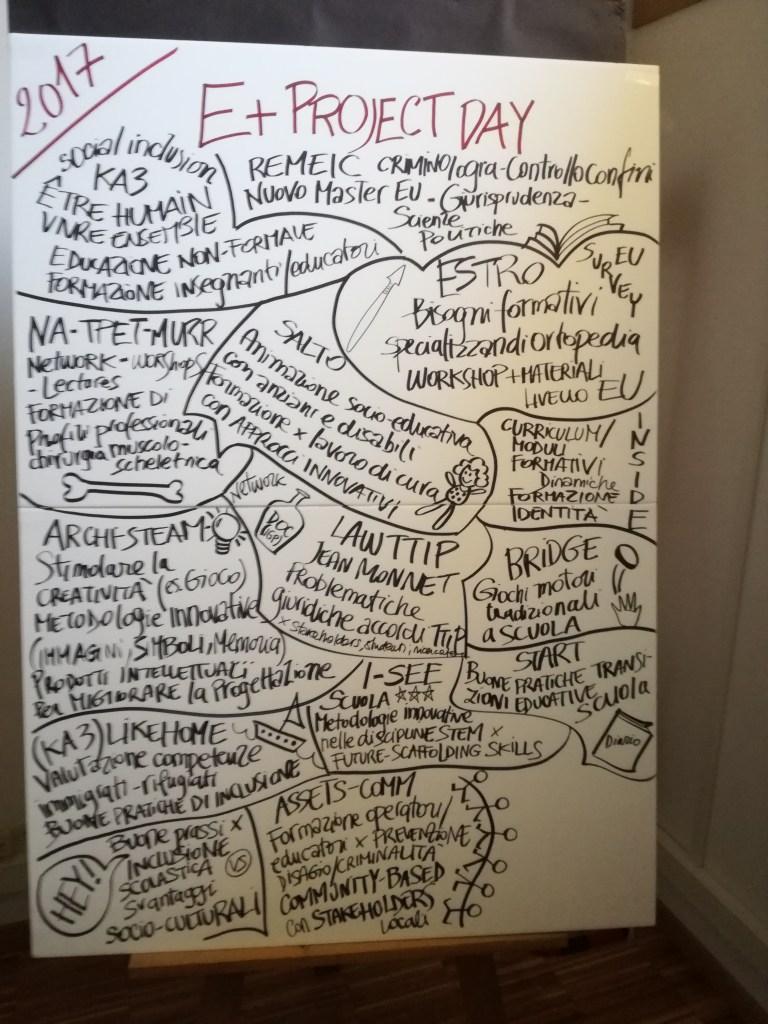 2017
E+ PROJECT DAY
social inclusion
KA3
ÊTRE HUMAIN
VIVRE ENSEMBLE
EDUCAZIONE NON-FORMALE
FORMAZIONE insegnanti/educatori
REMEIC CRIMINOlogia-Controllo Confini
Nuovo Master EU - Giurisprudenza-
Scienze
Politiche
ESTRO
EU
SURVEY
Bisogni formativi
specializzandi ortopedia
WORKSHOP + MATERIALI
LIVELLO EU
NA-TPET-MURR
Network - WORSHOPS
- Lectures
FORMAZIONE DI
Profili professionali
chirurgia muscolo-
scheletrica
SALTO
Animazione socio-educativa
con anziani e disabili
Formazione x lavoro di cura
con APPROCCI INNOVATIVI
INSIDE
CURRICULUM/
MODULI
FORMATIVI
Dinamiche
FORMAZIONE
IDENTITÀ
ARCHI-STEAM
Stimolare la
CREATIVITÀ (es. GIOCO)
METODOlogie Innovative
(IMMAGINI, SIMBOLI, Memoria)
PRODOTTI INTELLETTUALI
Per MIGLIORARE la Progettazione
Network
DOC
LAWTTIP
JEAN MONNET
Problematiche
giuridiche accordi TTIP
x Stakeholders, studenti,
BRIDGE
Giochi motori
tradizionali
a SCUOLA
START
BUONE PRATICHE TRANSI-
ZIONI EDUCATIVE
Scuola
Diario
I-SEE
SCUOLA
Metodologie innovative
nelle discipline STEM x
FUTURE-SCAFFOLDING SKILLS
(KA3) LIKEHOME
Valutazione competenze
immigrati-rifugiati
BUONE PRATICHE DI INCLUSIONE
HEY!!
Buone prassi x
INCLUSIONE
SCOLASTICA VS
Svantaggi
SOCIO-CULTURALI
ASSETS-COMM
Formazione operatori/
educatori x PREVENZIONE
DISAGIO/CRIMINALITÀ
COMMUNITY-BASED
con STAKEHOLDERS
Locali